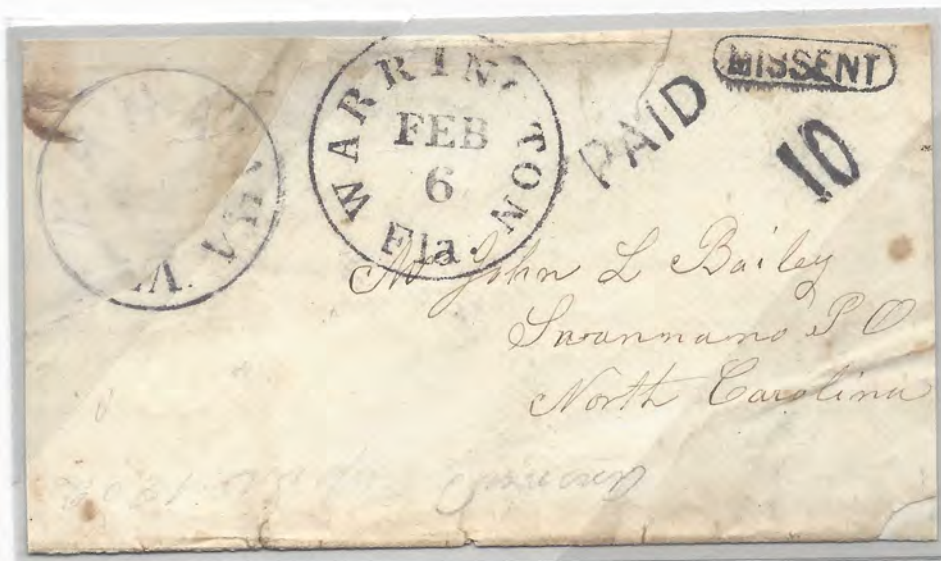 WARRINGTON
Fla.
FEB
6
PAID
MISSENT
10
Mr John L Bailey
Swannano P O
North Carolina